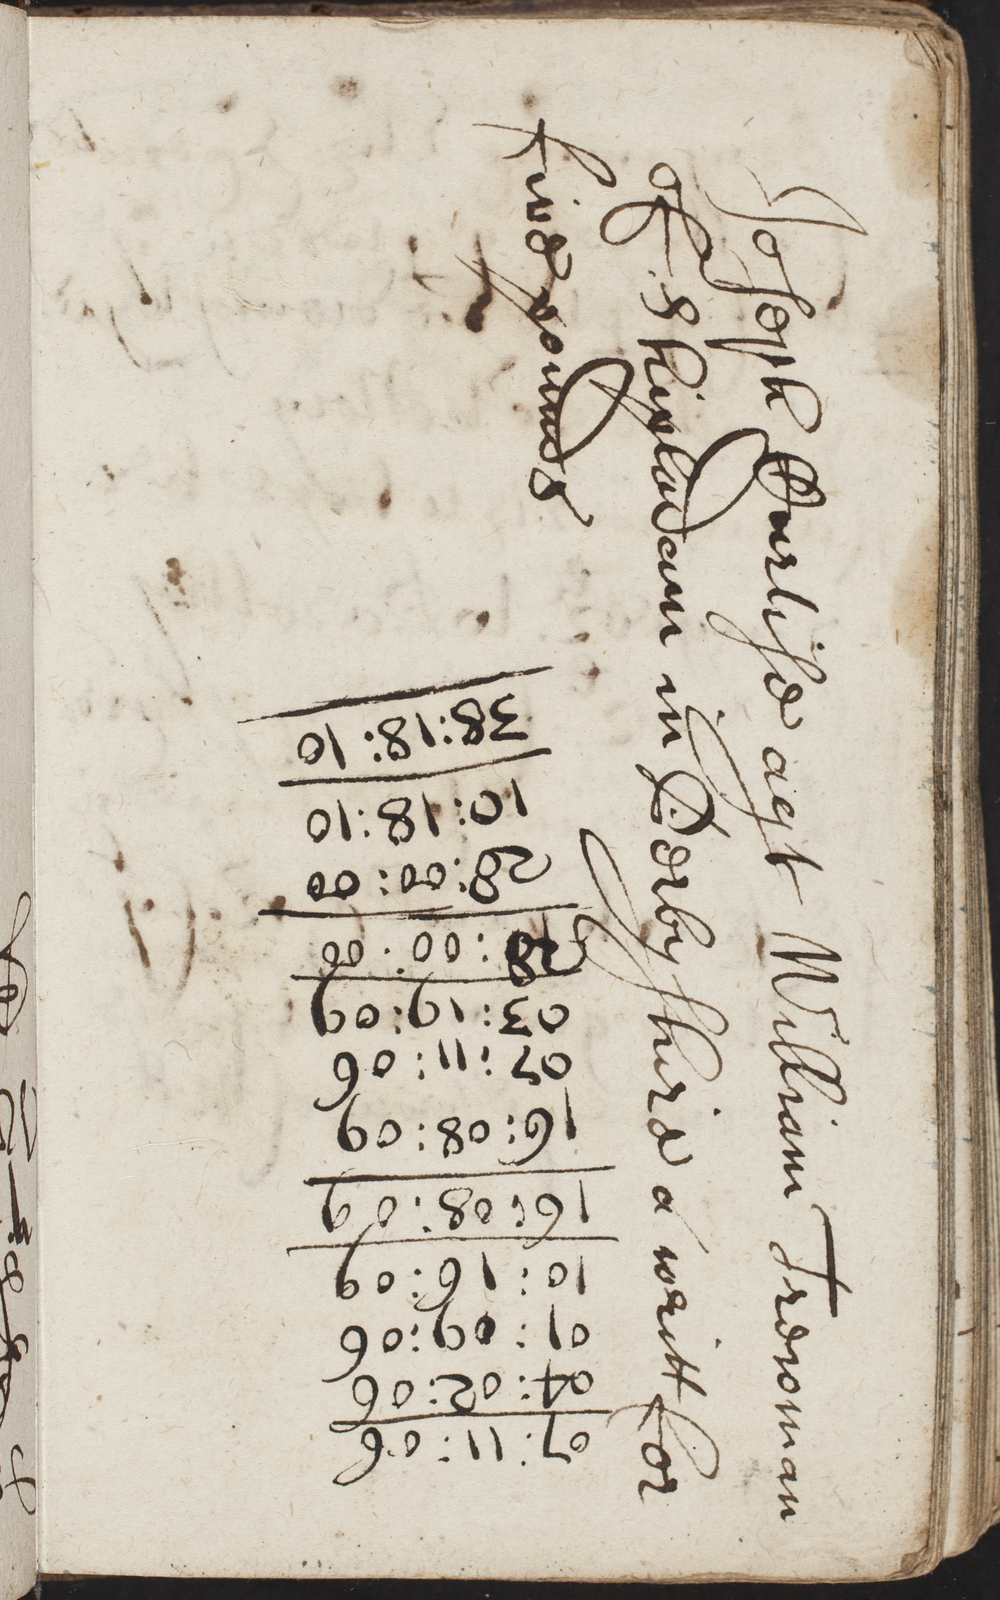 Joseph agt William
of in Derbyshire a writt for
five pounds
07:11:06
04:02:06
01:09:06
10:16:09
16:08:09
16:08:09
07:11:06
03:19:09
28:00:00
28:00:00
10:18:10
38:18:10